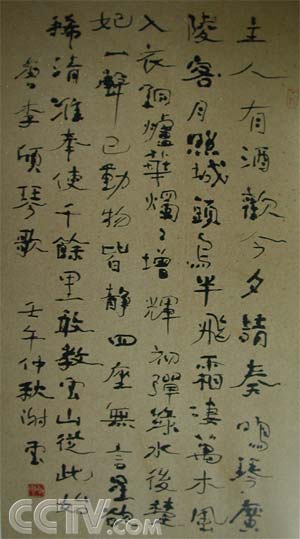 主人有酒歡今夕請奏鳴琴廣
陵客月照城頭烏半飛霜淒萬木風
入衣銅爐華燭〻增輝初彈綠水後楚
妃一聲已動物皆靜四座無言星欲
稀清淮奉使千餘里敢教雲山從此始
唐李頎琴歌 壬午仲秋謝雲
CCTV.com